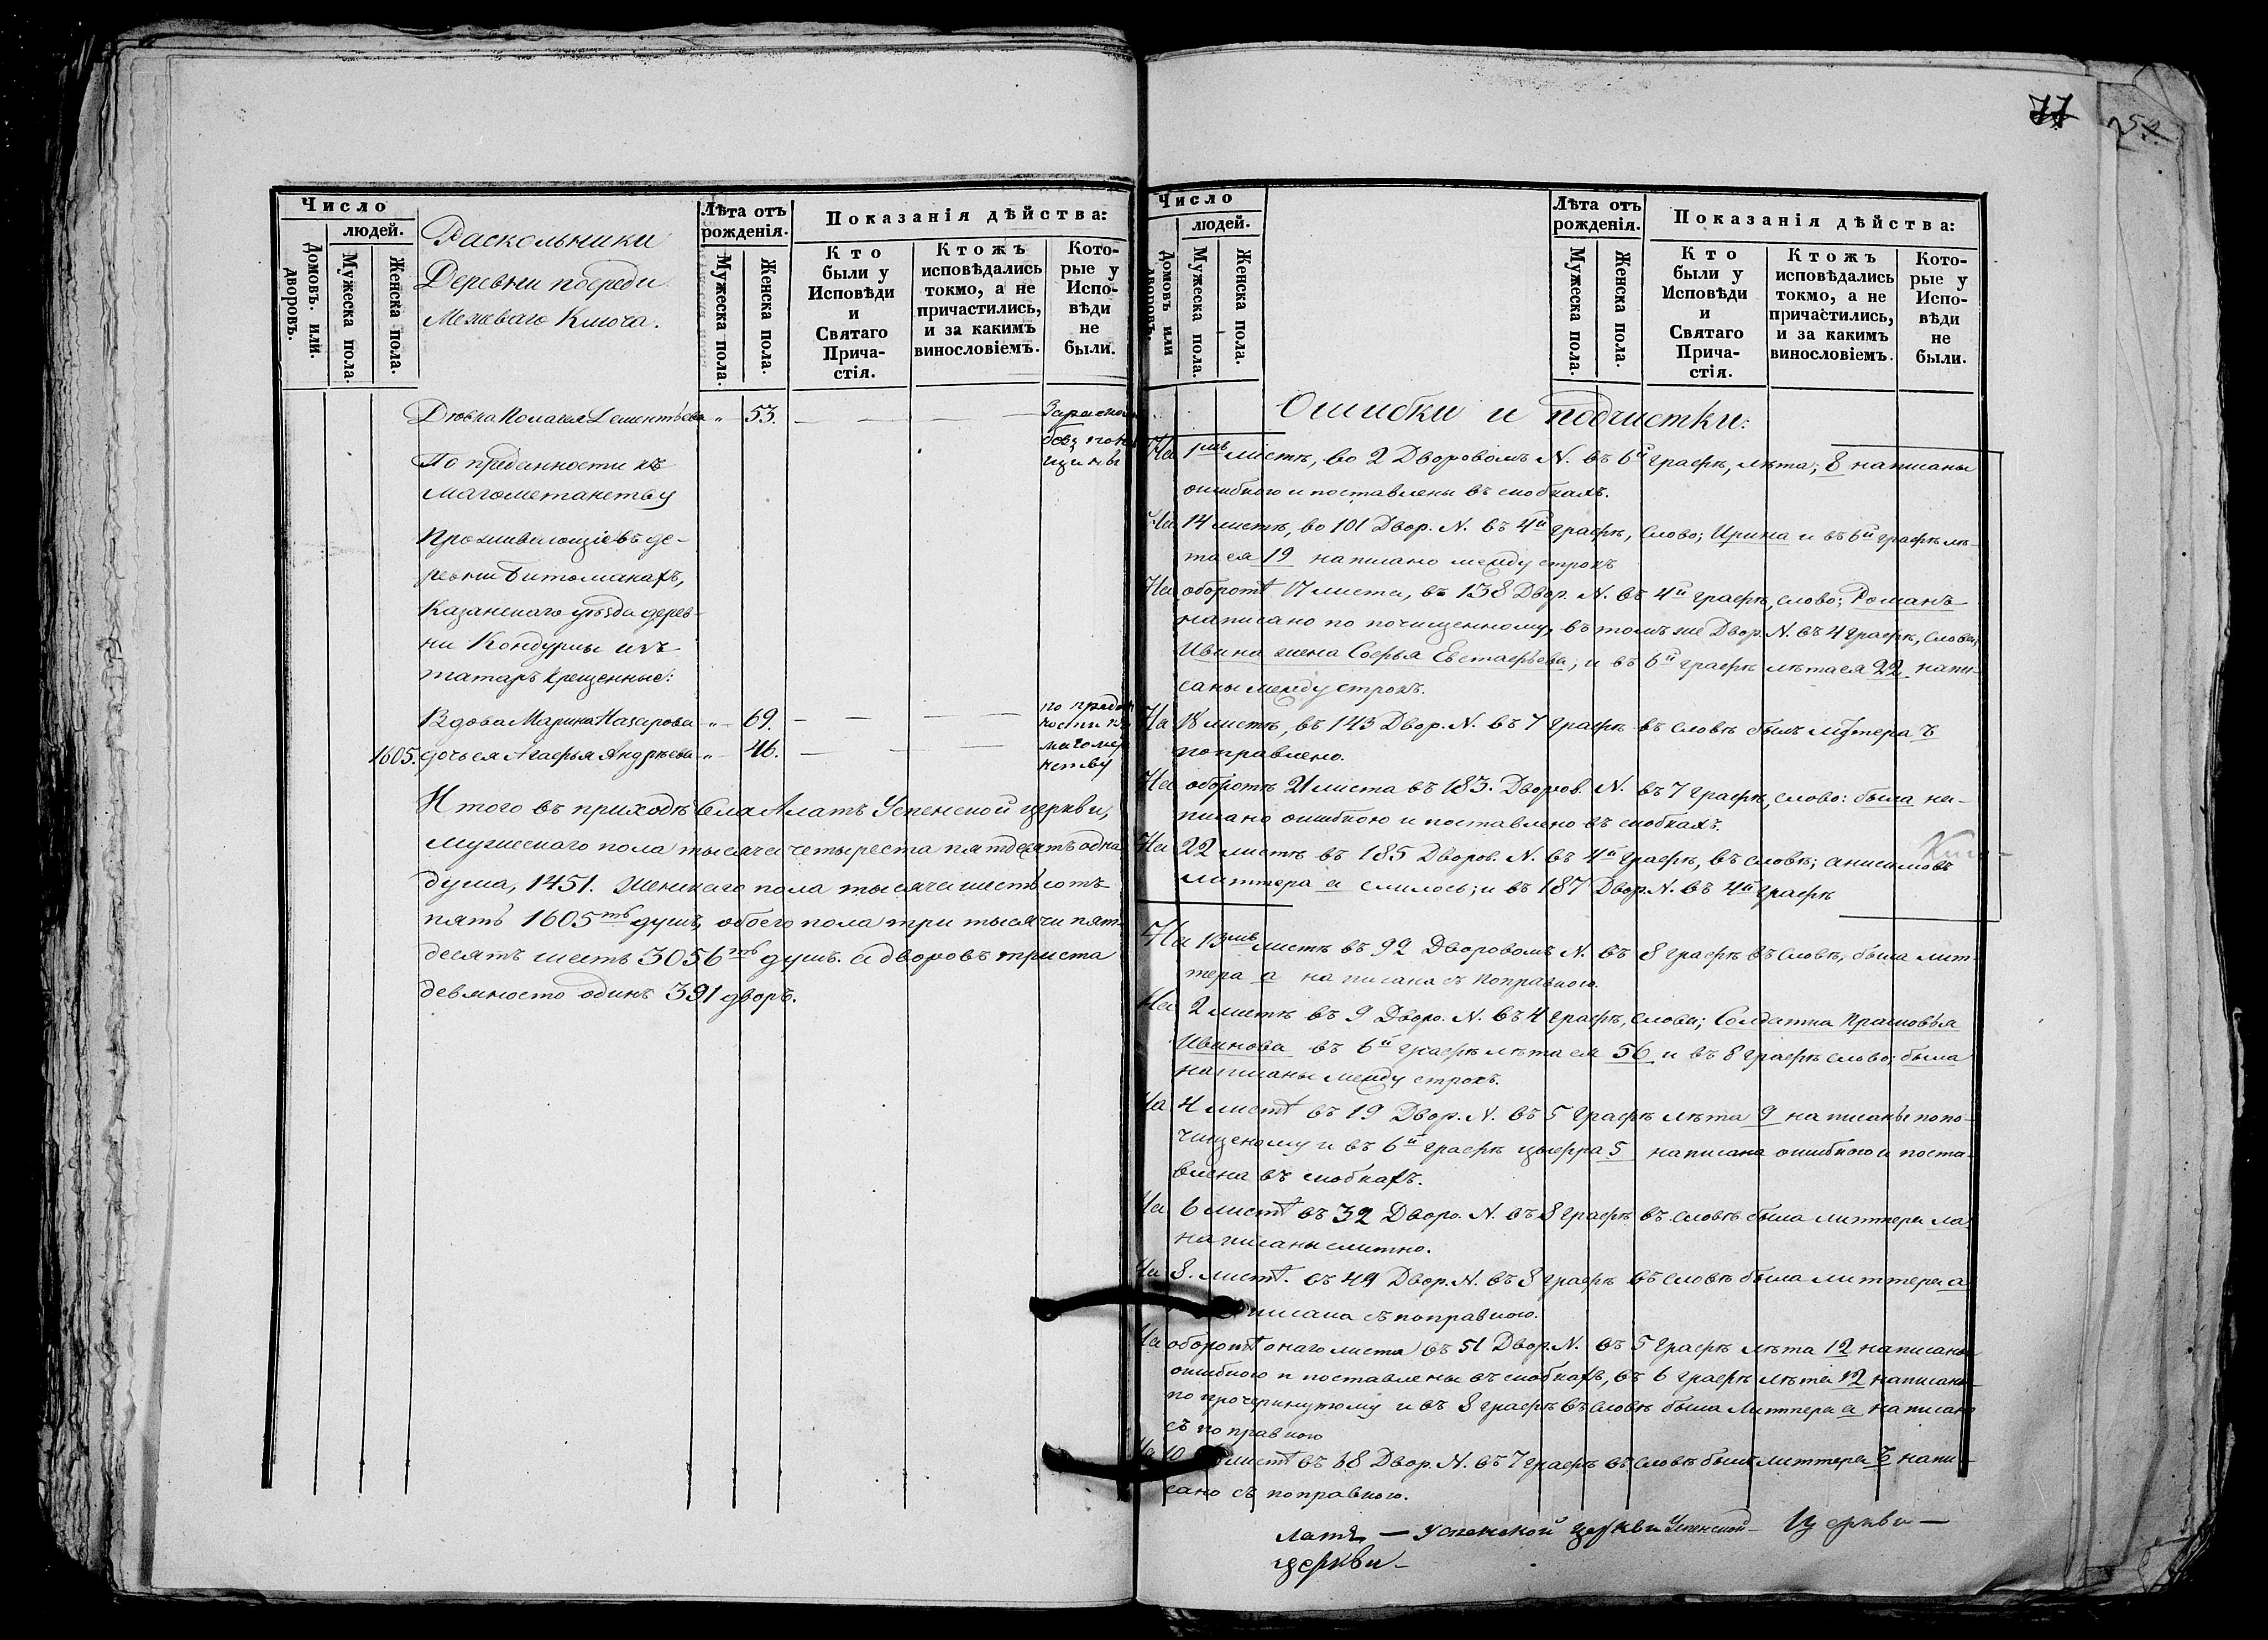 Число
людей.
Домовъ. или.
дворовъ.
Мужеска пола.
Женска пола.
Раскольники
Деревни посреди
Межеваго Ключа.
Лѣта отъ
рожденія.
Мужеска пола.
Женска пола.
Показанія дѣйства:
Кто
были у
Исповѣди
и
Святаго
Прича-
стія.
Ктожъ
исповѣдались
токмо, а не
причастились,
и за какимъ
винословіемъ.
Кото-
рые у
Испо-
вѣди
не
были.
Дементьева „ 53.
По преданности къ
магометанству
Проживающіе въ де-
ревни Битоманахъ,
Казанскаго уѣзда дерев-
ни Кондурчи изъ
татаръ крещенные:
Вдова Марина Назарова „ 69.
1605. дочь ея Агафья Андрѣева „ 46.
по предан
ности къ
магоме
нству
Итого въ приходѣ села Алатъ Успенской церкви,
мужескаго пола тысяча четыреста пятдесятъ одна
душа, 1451. Женскаго пола тысяча шестьсотъ
пять 1605ть душъ, обоего пола три тысячи пят-
десятъ шесть 3056ть душъ. а дворовъ триста
девяносто одинъ 391 дворъ.
77
Число
людей.
Домовъ или
дворовъ.
Мужеска пола.
Женска пола.
Лѣта отъ
рожденія.
Мужеска пола.
Женска пола.
Показанія дѣйства:
Кто
были у
Исповѣди
и
Святаго
Прича-
стія.
Ктожъ
исповѣдались
токмо, а не
причастились,
и за какимъ
винословіемъ.
Кото-
рые у
Испо-
вѣди
не
были.
Ошибки и подчистки:
На 1мъ листѣ, во 2 Дворовомъ N. въ 6й графѣ, лѣта; 8 написаны
ошибкою и поставлены въ скобкахъ.
На 14 листѣ, во 101 Двор. N. въ 4й графѣ, слово; Ирина и въ 6й графѣ лѣ-
та ея 19 написано между строкъ
На оборотѣ 17 листа, въ 138 Двор. N. въ 4й графѣ, слово; Романъ
написано по почищенному, въ томъ же Двор. N. въ 4 графѣ, слова;
Ивана жена Софья Евстафьева; и въ 6й графѣ лѣта ея 22 напи-
саны между строкъ.
На 18 листѣ, въ 143 Двор. N. въ 7 графѣ въ словѣ былъ литтера ъ
поправлено.
На оборотѣ 21 листа въ 183. Дворов. N. въ 7 графѣ, слово: была на-
писано ошибкою и поставлено въ скобкахъ.
На 22 листѣ въ 185 Дворов. N. въ 4й графѣ, въ словѣ; анисимовъ
литтера а слилось; и въ 187 Двор. N. въ 4й графѣ
На 13мъ листѣ въ 92 Дворовомъ N. въ 8 графѣ въ словѣ, была лит-
тера а написана съ поправкою.
На 2 листѣ въ 9 Дворо. N. въ 4 графѣ, слова; Солдатка Прасковья
Иванова въ 6й графѣ лѣта ея 56 и въ 8 графѣ слово; была
написаны между строкъ.
На 4 листѣ въ 19 Двор. N. въ 5 графѣ лѣта 9 написаны по по-
чищеному и въ 6й графѣ цыфра 5 написана ошибкою и поста-
влена въ скобкахъ.
На 6 листѣ въ 32 Дворо. N. въ 8 графѣ въ словѣ была литтеры ла
написаны слитно.
На 8. листѣ. въ 49 Двор. N. въ 8 графѣ въ словѣ была литтера а
писана съ поправкою.
На оборотѣ онаго листа въ 51 Двор. N. въ 5 графѣ лѣта 12 написаны
ошибкою и поставлены въ скобкахъ, въ 6 графѣ лѣта 12 написаны
по прочеркнутому и въ 8 графѣ въ словѣ была литтера а написана
съ поправкою
На 10 листѣ въ 68 Двор. N. въ 7 графѣ въ словѣ былъ литтера ъ напи-
сано съ поправкою.
латъ — Успенской церкви Успенской — Церкви —
церкви —